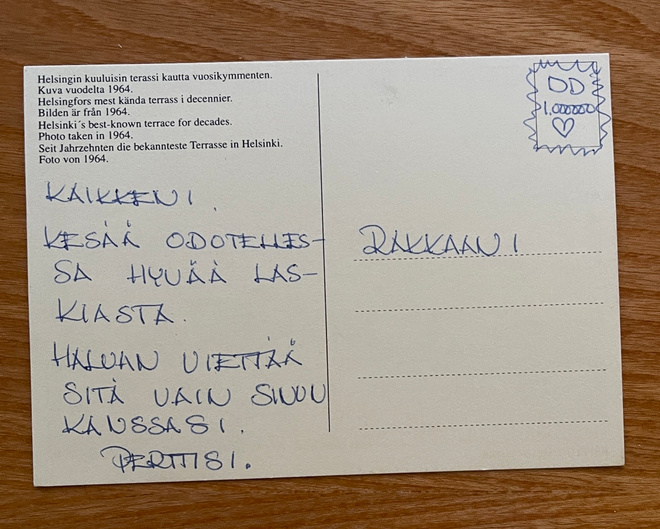 Helsingin kuuluisin terassi kautta vuosikymmenten.
Kuva vuodelta 1964.
Helsingfors mest kända terrass i decennier.
Bilden är från 1964.
Helsinki´s best-known terrace for decades.
Photo taken in 1964.
Seit Jahrzehnten die bekannteste Terrasse in Helsinki.
Foto von 1964.
KAIKKENI.
KESÄÄ ODOTELLES-
SA HYVÄÄ LAS-
KIASTA.
HALUAN VIETTÄÄ
SITÄ VAIN SINUN
KANSSASI.
PERTTISI.
1.000000
RAKKAANI